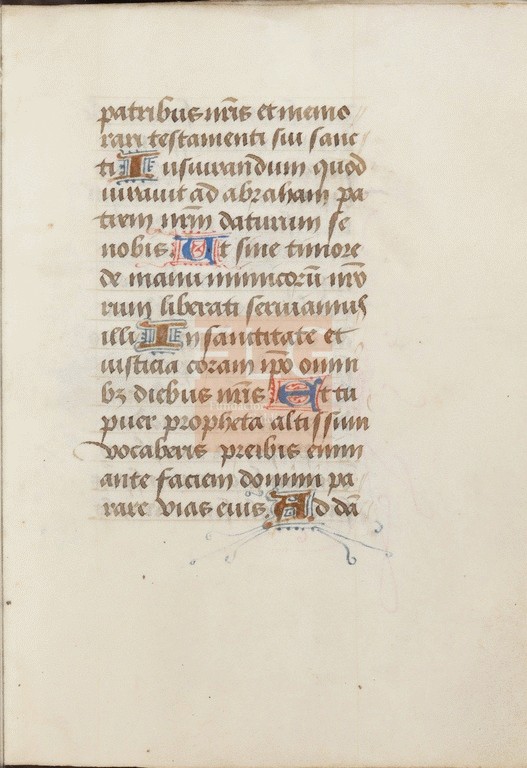 patribus nr̄is et memo
rari testamenti sui sanc
ti Iusiurandum quod
iurauit ad abraham pa
trem nr̄m daturum se
nobis Ut sine timore
de manu inimicorū nr̄o
rum liberati seruiamus
illi In sanctitate et
iusticia coram ip̄o omni
bꝫ diebus nr̄is Et tu
puer propheta altissimi
vocaberis preibis enim
ante faciem domini pa
rare vias eius. Ad dā